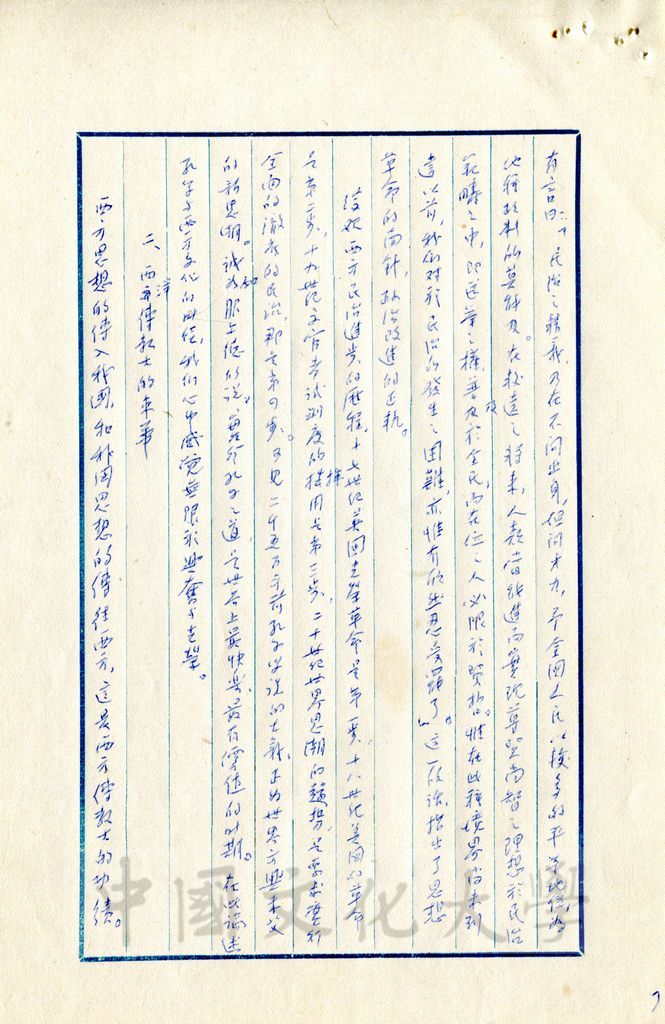 有言曰:「民治之精義,乃在不問出身,但問才力,予全國人民以較多的平等地位,為
他種政制的莫能及。在較遠之將來,人類當能進而實現尊賢尚智之理想於民治
範疇之中,即選舉之權普及於全民,而在位之人必限於賢哲。惟在此種境界尚未到
達以前,我們對於民治的發生之困難,亦惟有欣然忍受罷了。」這一段話,指出了思想
革命的南針,政治改進的正軌。
綜觀西方民治進步的歷程,十七世紀英國光榮革命是第一步,十八世紀美國的革命
是第二步,十九世紀文官考試制度的採用是第三步,二十世紀世界思潮的趨勢,是要求實行
全面的澈底的民治,那是第四步。可見二千五百年前孔子學說的大義,正為世界方興未艾
的新思潮。誠如服爾德所說,奉行孔子之道,是世界上最快樂、最有價值的時期。在此論述
孔學與西方文化的關係,我們心中感覺無限的興奮與光榮。
二、西洋傳教士的來華
西方思想的傳入我國,和我國思想的傳往西方,這是西方傳教士的功績。
中國文化大學
7